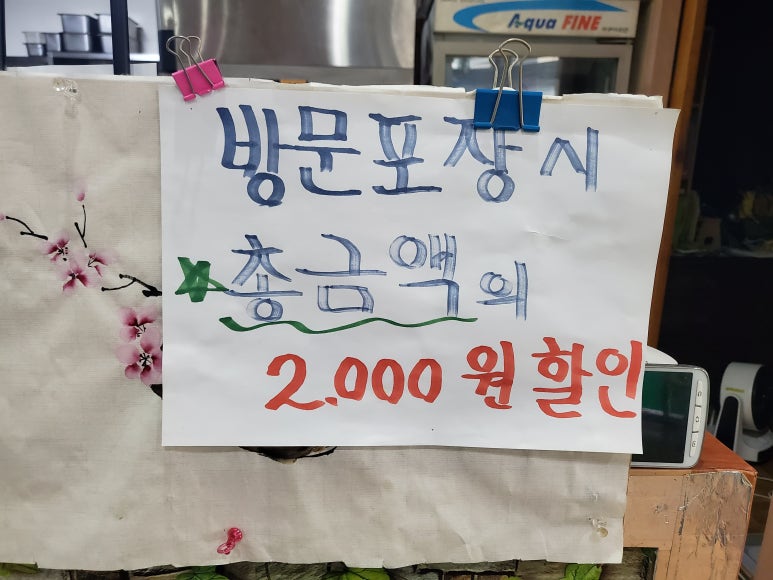 Aqua FINE
방문포장시
★총금액의
2.000원할인